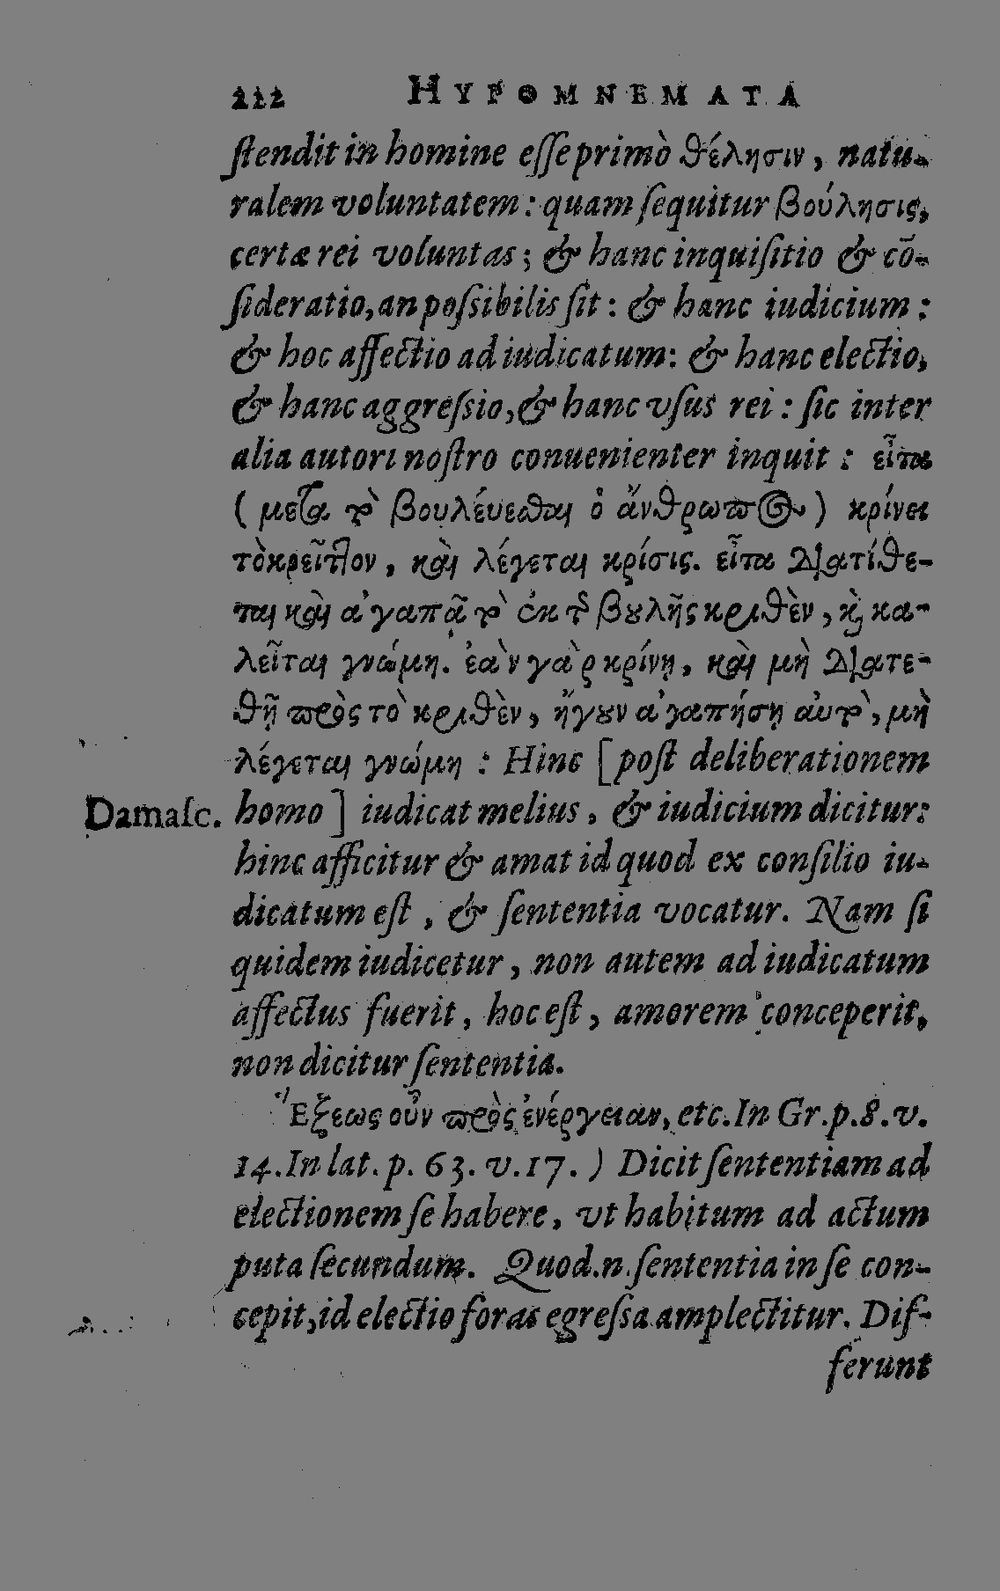 212 HYPOMNEMATA
ſtendit in homine eſſe primò θέλησιν, natu-
ralem voluntatem: quam ſequitur βούλησις,
certæ rei voluntas; & hanc inquiſitio & cō-
ſideratio, an poſsibilis ſit: & hanc iudicium:
& hoc affectio ad iudicatum: & hanc electio,
& hanc aggreſsio, & hanc vſus rei: ſic inter
alia autori noſtro conuenienter inquit: εἶτα
(μετὰ τὸ βουλεύεσθαι ὁ ἄνθρωπος) κρίνει
τὸ κρεῖττον, καὶ λέγεται κρίσις. εἶτα διατίθε-
ται καὶ ἀγαπᾷ τὸ ἐκ τῆς βουλῆς κριθὲν, καὶ κα-
λεῖται γνώμη. ἐὰν γὰρ κρίνῃ, καὶ μὴ διατε-
θῇ πρὸς τὸ κριθὲν, ἤγουν ἀγαπήσῃ αὐτὸ, μὴ
λέγεται γνώμη: Hinc [poſt deliberationem
Damaſc. homo] iudicat melius, & iudicium dicitur:
hinc afficitur & amat id quod ex conſilio iu-
dicatum eſt, & ſententia vocatur. Nam ſi
quidem iudicetur, non autem ad iudicatum
affectus fuerit, hoc eſt, amorem conceperit,
non dicitur ſententia.
Ἕξεως οὖν πρὸς ἐνέργειαν, etc. In Gr. p. 8. v.
14. In lat. p. 63. v. 17.) Dicit ſententiam ad
electionem ſe habere, vt habitum ad actum
puta ſecundum. Quod.n. ſententia in ſe con-
cepit, id electio foras egreſsa amplectitur. Dif-
ferunt